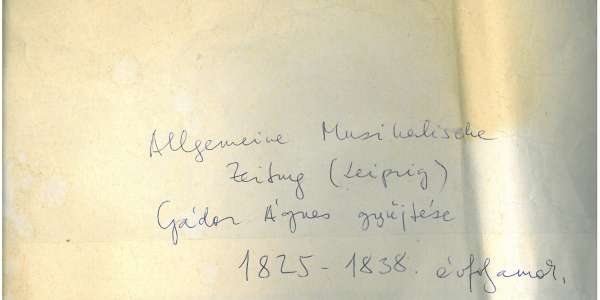 Allgemeine Musikalische
Zeitung (Leipzig)
Gádor Ágnes gyűjtése
1825-1838. évfolyamok.